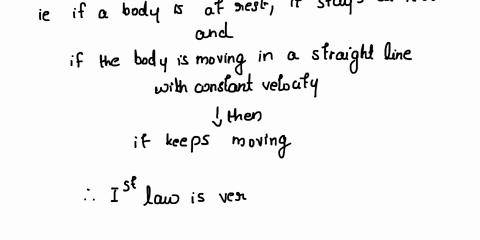 ie if a body is at rest, it stays
and
if the body is moving in a straight line
with constant velocity
↓ then
it keeps moving
∴ Ist law is ver